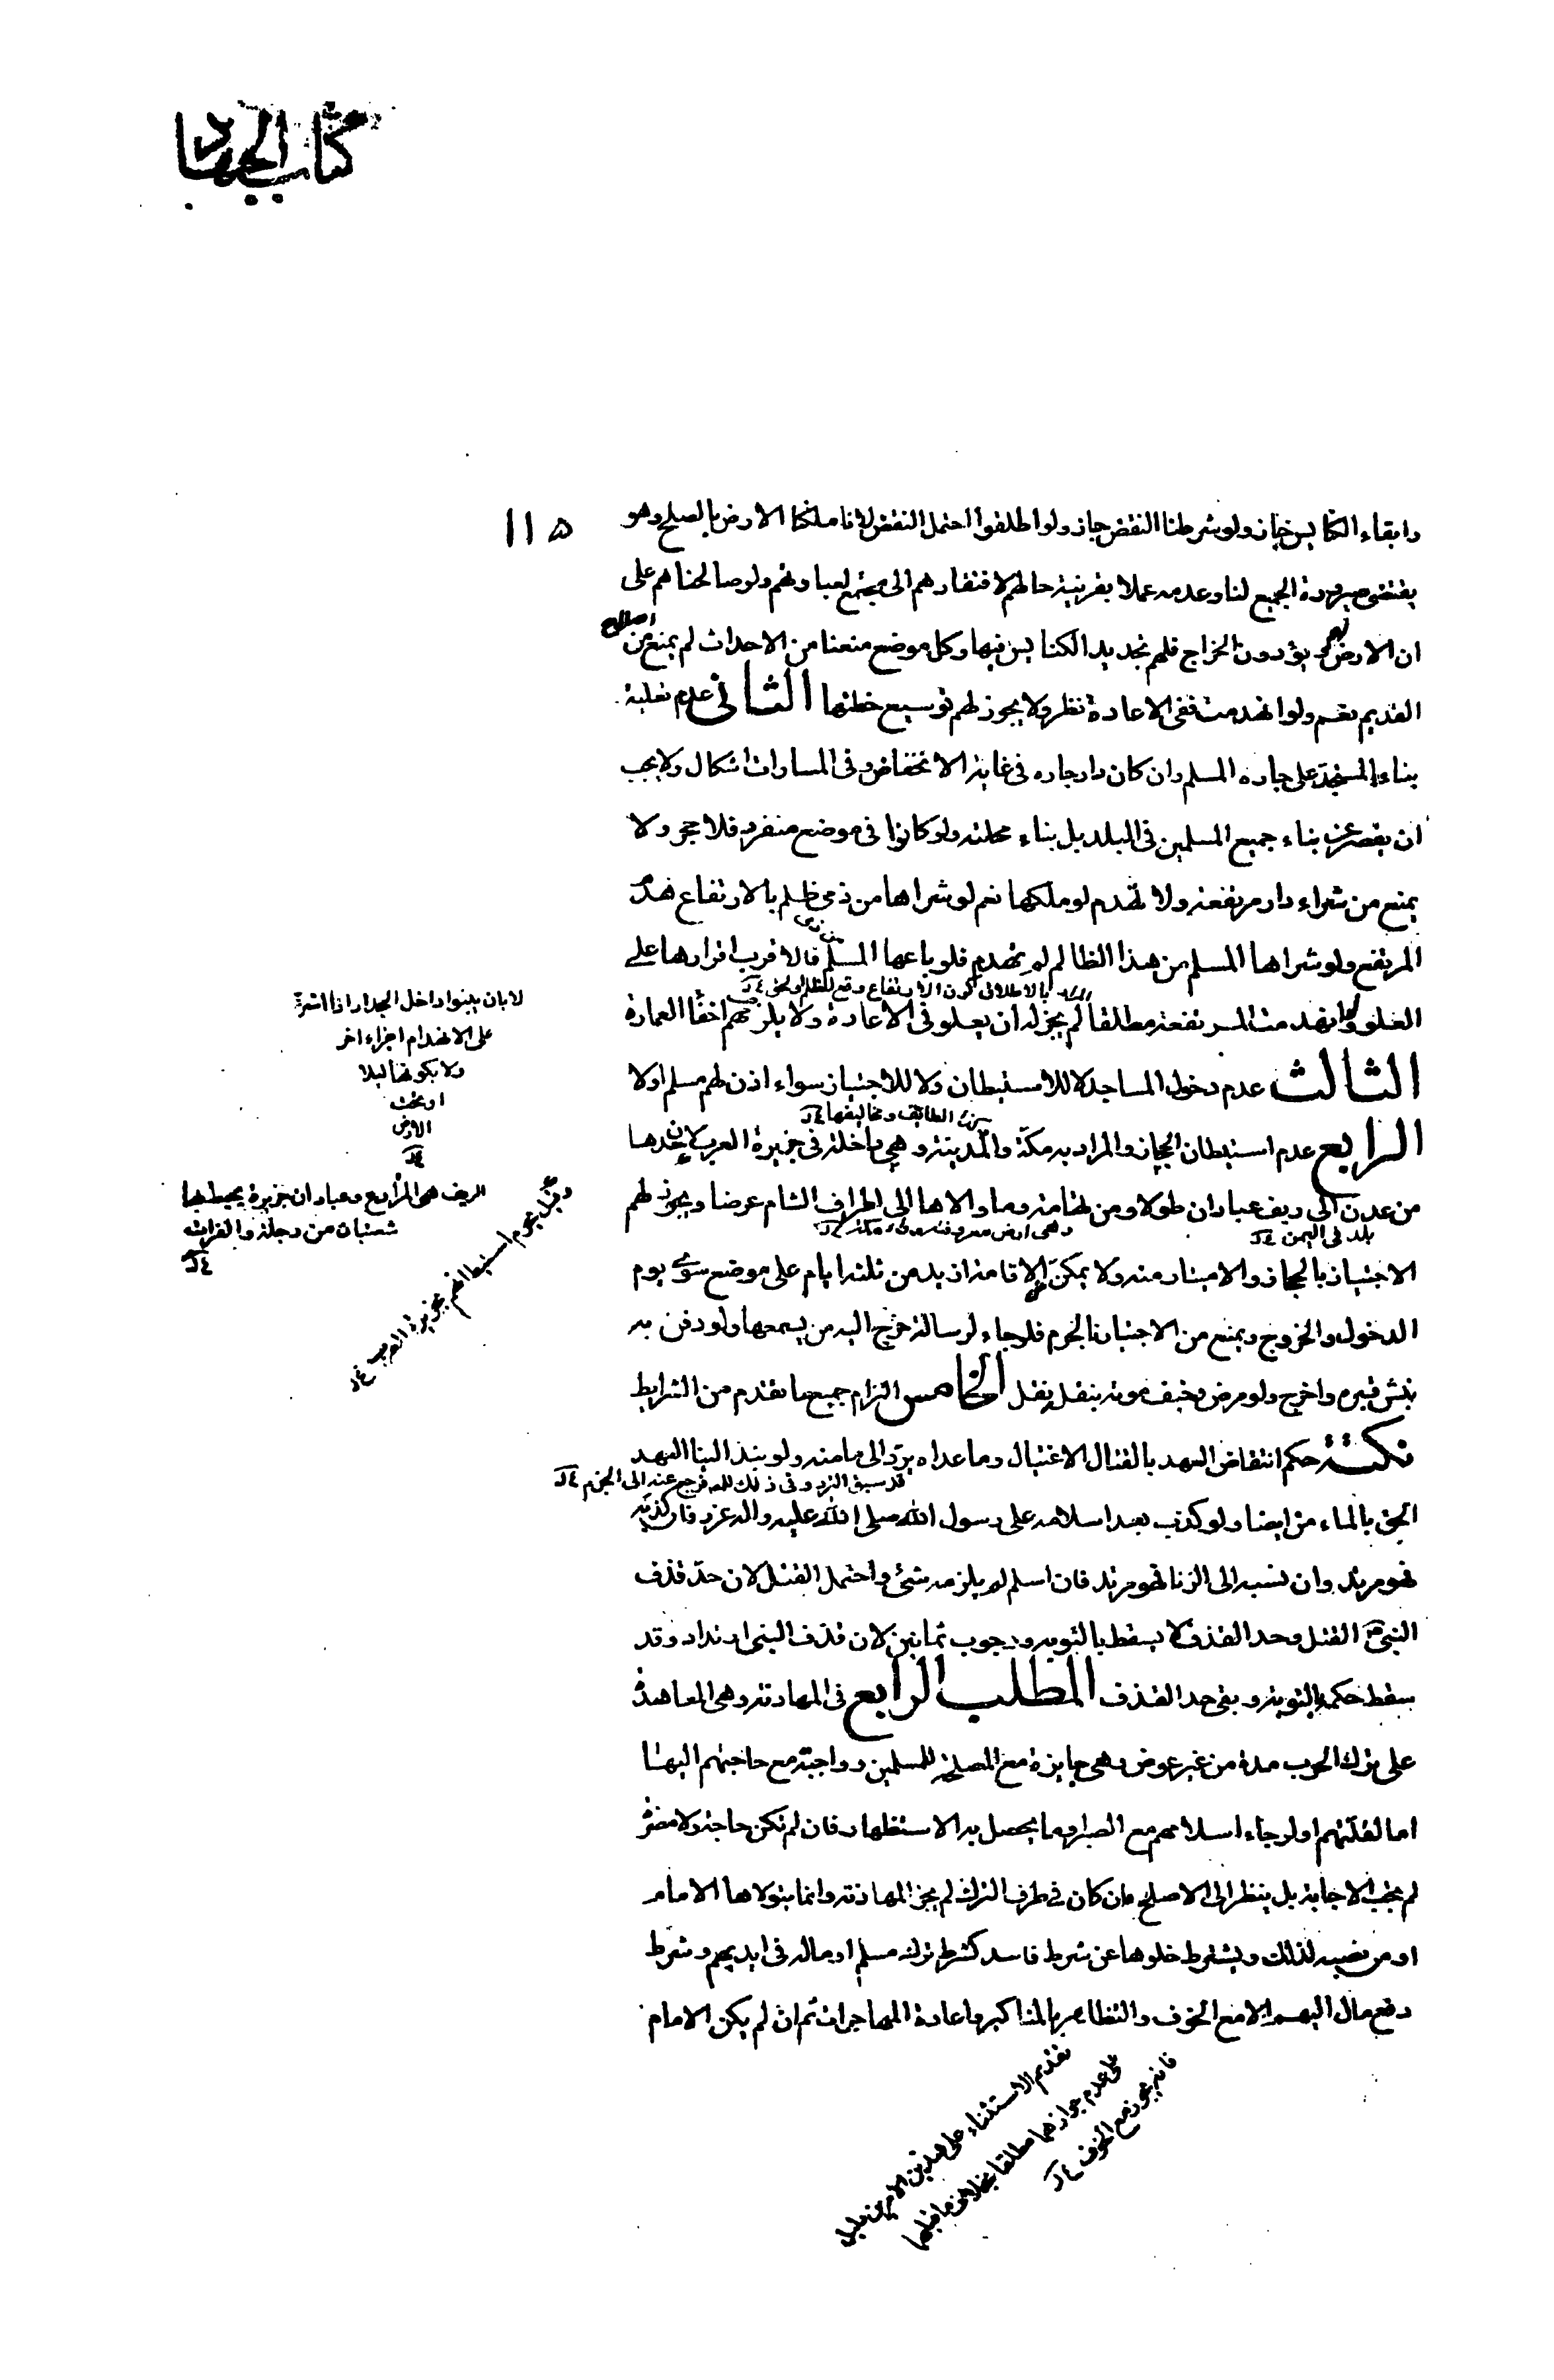 كتاب الجهاد
١١٥
وابقاء الكنايس جاز ولو شرطنا النقض جاز ولو اطلقوا احتمل النقض لانا ملكنا الارض بالصلح وهو
يقتضى صيرورة الجميع لنا وعدمه عملا بقرينة حالهم لافتقارهم الى مجتمع لعباداتهم ولو صالحناهم على
ان الارض لهم ويؤدون الخراج فلهم تجديد الكنايس فيها وكل موضع منعنا من الاحداث لم يمنع من اصلاح
القديم نعم ولو انهدمت ففى الاعادة نظر ولا يجوز لهم توسيع خطتها الثانى عدم تعلية
بناء المستجد على جاره المسلم وان كان دار جاره فى غاية الانخفاض وفى المساوات اشكال ولا يجب
ان يقصر عن بناء جميع المسلمين فى البلد بل بناء محلته ولو كانوا فى موضع منفرد فلا حجر ولا
يمنع من شراء دار مرتفعة ولا تهدم لو ملكها نعم لو شراها من ذمى ظلم بالارتفاع هدم
المرتفع ولو شراها المسلم من هذا الظالم لم يهدم فلو باعها المسلم من ذمى فالاقرب اقرارها على
بالاطلاق كون الارتفاع وقع للظلم او لحق
العلو ولو انهدمت المرتفعة مطلقا لم يجز له ان يعلو فى الاعادة ولا يلزمهم اخفاء العمارة
الثالث عدم دخول المساجد لا للاستيطان ولا للاجتياز سواء اذن لهم مسلم او لا
الطائف ومخاليفها
الرابع عدم استيطان الحجاز والمراد به مكة والمدينة وهى داخلة فى جزيرة العرب لان حدها
من عدن الى ريف عبادان طولا ومن تهامة وما والاها الى اطراف الشام عرضا ويجوز لهم
بلد فى اليمن
وهى ارض معروفة
الاجتياز بالحجاز والامتيار منه ولا يمكن الاقامة ازيد من ثلثة ايام على موضع سوى يوم
الدخول والخروج ويمنع من الاجتياز بالحرم فلو جاء لرسالة خرج اليه من يسمعها ولو دفن به
نبش قبره واخرج ولو مرض وخيف موته بنقل نقل الخامس التزام جميع ما تقدم من الشرايط
نكتة حكم انتقاض العهد بالقتال الاغتيال وما عداه يرد الى مامنه ولو نبذ الينا العهد
قد سبق التردد فى ذلك للمه فرجع عنه الى الجزم
الحق بالمامن ايضا ولو كذب بعد اسلامه على رسول الله صلى الله عليه واله عزر فان كذبه
فهو مرتد وان نسبه الى الزنا فهو مرتد فان اسلم لم يلزمه شئ واحتمل القتل لان حد قذف
النبى ص القتل وحد القذف لا يسقط بالتوبه ووجوب ثمانين لان قذف النبى ارتداد وقد
سقط حكمه بالتوبة وبقى حد القذف المطلب الرابع فى المهادنة وهى المعاهدة
على ترك الحرب مدة من غير عوض وهى جايزة مع المصلحة للمسلمين وواجبة مع حاجتهم اليها
اما لقلتهم او لرجاء اسلامهم مع الصبر او ما يحصل به الاستظهار فان لم تكن حاجة ولا مضرة
لم تجب الاجابة بل ينظر الى الاصلح فان كان فى طرف الترك لم يجز المهادنة وانما يتولاها الامام
او من نصبه لذلك ويشترط خلوها عن شرط فاسد كشرط ترك مسلم او ماله فى ايديهم وشرط
دفع مال اليهم الا مع الخوف والتظاهر بالمناكير واعادة المهاجرات ثم ان لم يكن الامام
لا بان يبنوا داخل الجدار اذا اشرف
على الانهدام اجزاء اخر
ولا بكونها ليلا
او تحت
الارض
الريف هى المزارع وعبادان جزيرة يحيط بها
شعبتان من دجلة والفرات
وقيل بعموم استيطانهم بجزيرة العرب
تقديم الاستثناء على هذين الامرين
على عدم جوازهما مطلقا بخلاف ما قبلهما
فانه يجوز مع الخوف